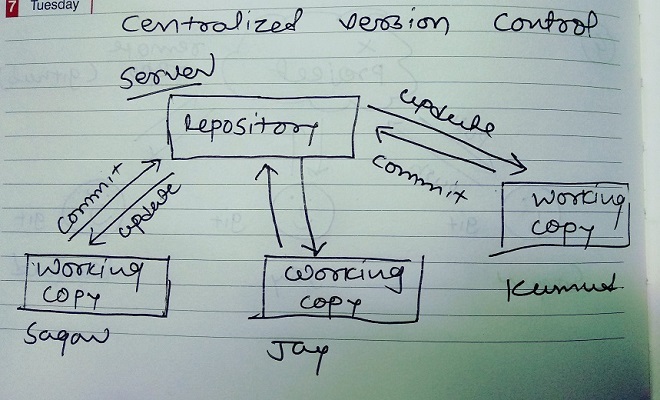 7 Tuesday
Centralized Version Control
Server
Repository
update
commit
commit
update
Working
copy
Working
copy
Working
copy
Kumud
Sagar
Jay